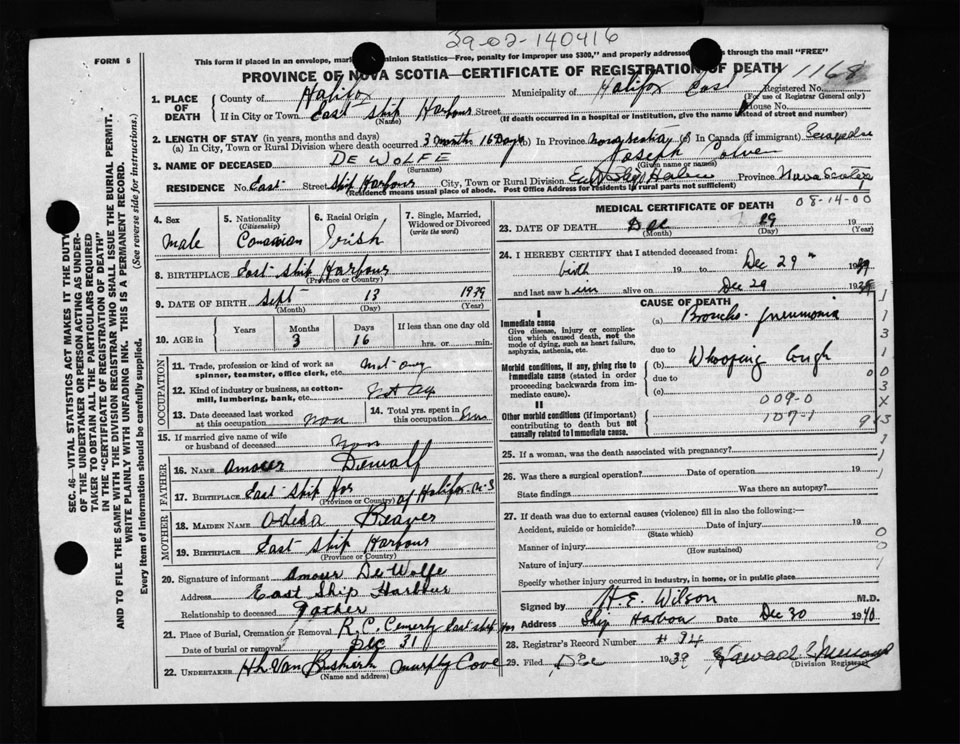 29-02-140416
FORM 6
This form if placed in an envelope, mar Dominion Statistics—Free, penalty for improper use $300," and properly addressed through the mail "FREE"
PROVINCE OF NOVA SCOTIA—CERTIFICATE OF REGISTRATION OF DEATH
1168
1. PLACE OF DEATH
County of Halifax Municipality of Halifax East Registered No.
(For use of Registrar General only)
If in City or Town East Ship Harbour Street House No.
(Name) (If death occurred in a hospital or institution, give the name instead of street and number)
2. LENGTH OF STAY (in years, months and days)
(a) In City, Town or Rural Division where death occurred 3 month 16 Days (b) In Province Nova Scotia (c) In Canada (if immigrant)
3. NAME OF DECEASED DE WOLFE Joseph
(Surname) (Given name or names)
RESIDENCE No. East Street Ship Harbour City, Town or Rural Division East Ship Harbour Province Nova Scotia
(Residence means usual place of abode. Post Office Address for residents in rural parts not sufficient)
4. Sex Male
5. Nationality (Citizenship) Canadian
6. Racial Origin Irish
7. Single, Married, Widowed or Divorced (write the word)
8. BIRTHPLACE East Ship Harbour
(Province or Country)
9. DATE OF BIRTH Sept 13 1939
(Month) (Day) (Year)
10. AGE in Years Months 3 Days 16 If less than one day old
hrs. or min.
OCCUPATION
11. Trade, profession or kind of work as spinner, teamster, office clerk, etc. Not any
12. Kind of industry or business, as cotton-mill, lumbering, bank, etc. Not any
13. Date deceased last worked at this occupation non
14. Total yrs. spent in this occupation
15. If married give name of wife or husband of deceased non
FATHER
16. NAME Amoser Dewolf
17. BIRTHPLACE East Ship Har of Halifax N-S
(Province or Country)
MOTHER
18. MAIDEN NAME Odesa Beaver
19. BIRTHPLACE East Ship Harbour
(Province or Country)
20. Signature of informant Amoser De Wolfe
Address East Ship Harbour
Relationship to deceased Father
21. Place of Burial, Cremation or Removal R.C. Cemerty East Ship
Date of burial or removal Dec 31
22. UNDERTAKER H.h. Van Buskirk Murphy Cove
(Name and address)
MEDICAL CERTIFICATE OF DEATH
08-14-00
23. DATE OF DEATH Dec 29 19
(Month) (Day) (Year)
24. I HEREBY CERTIFY that I attended deceased from:
birth 19 to Dec 29" 1939
and last saw him alive on Dec 29 1939
CAUSE OF DEATH
I
Immediate cause
Give disease, injury or complication which caused death, not the mode of dying, such as heart failure, asphyxia, asthenia, etc.
(a) Broncho-pneumonia
due to
Morbid conditions, if any, giving rise to immediate cause (stated in order proceeding backwards from immediate cause).
(b) Whooping Cough
due to
(c)
009-0
II
Other morbid conditions (if important) contributing to death but not causally related to immediate cause.
107-1
25. If a woman, was the death associated with pregnancy?
26. Was there a surgical operation? Date of operation 19
State findings Was there an autopsy?
27. If death was due to external causes (violence) fill in also the following:—
Accident, suicide or homicide? Date of injury 19
(State which)
Manner of injury
(How sustained)
Nature of injury
Specify whether injury occurred in industry, in home, or in public place
Signed by H.E. Wilson M.D.
Address Ship Harbour Date Dec 30 1940
28. Registrar's Record Number # 94
29. Filed Dec 1939
(Division Registrar)
SEC. 46—VITAL STATISTICS ACT MAKES IT THE DUTY
OF THE UNDERTAKER OR PERSON ACTING AS UNDER-
TAKER TO OBTAIN ALL THE PARTICULARS REQUIRED
IN THE "CERTIFICATE OF REGISTRATION OF DEATH"
AND TO FILE THE SAME WITH THE DIVISION REGISTRAR WHO SHALL ISSUE THE BURIAL PERMIT.
WRITE PLAINLY WITH UNFADING INK. THIS IS A PERMANENT RECORD.
(See reverse side for instructions.)
Every item of information should be carefully supplied.